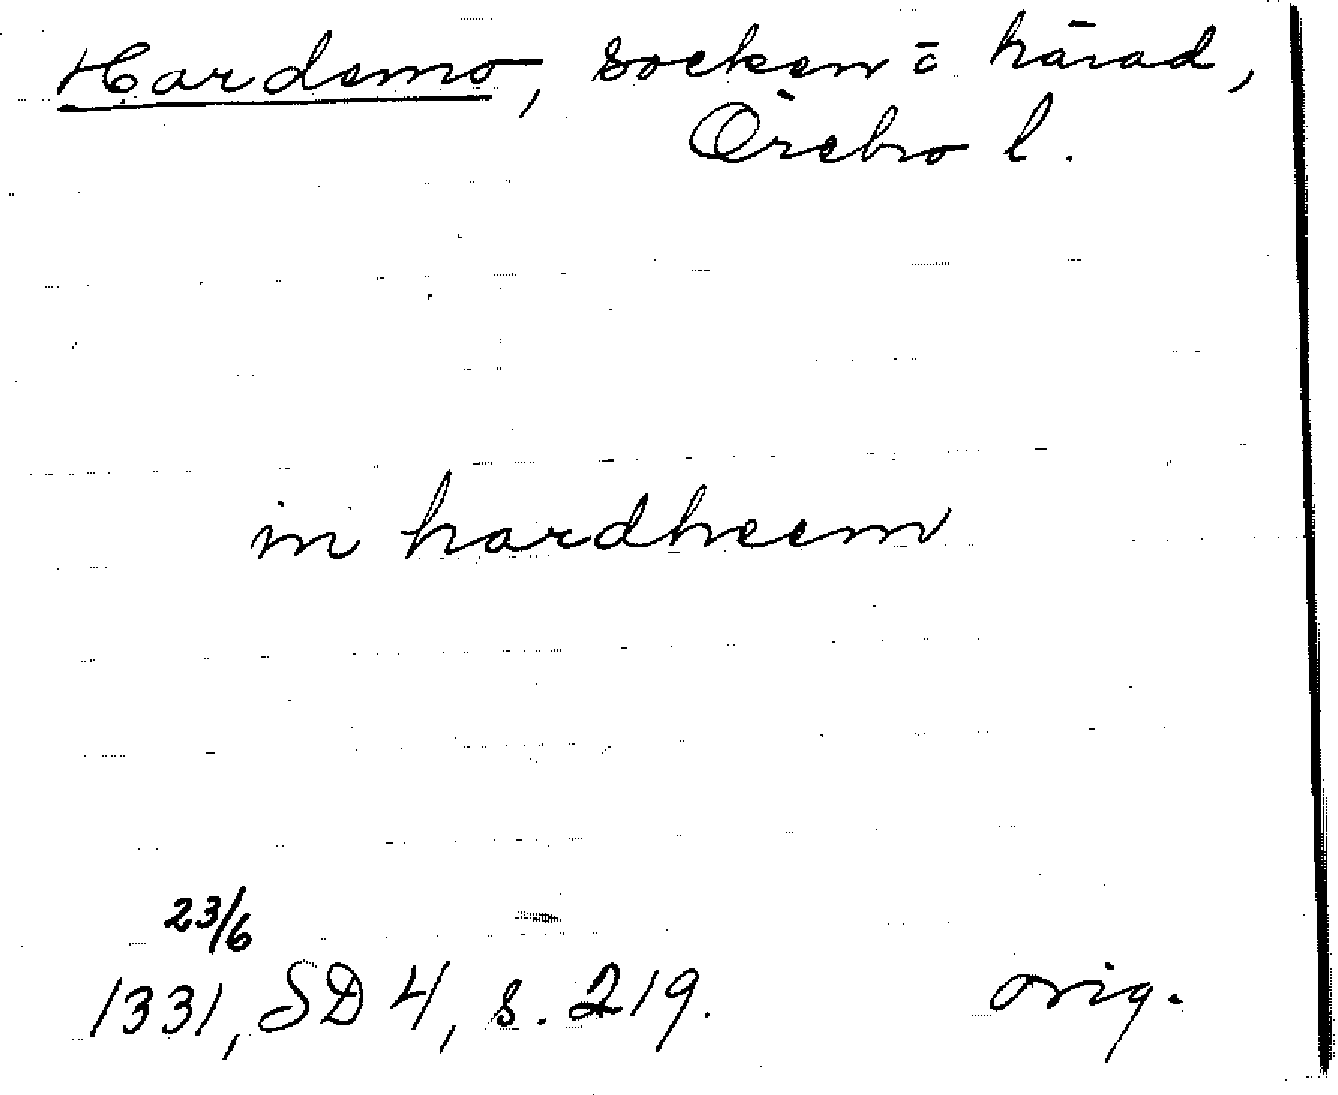 Hardemo, socken o. härad,
Örebro l.
in hardheem
23/6
1331, SD 4, s. 219. orig.